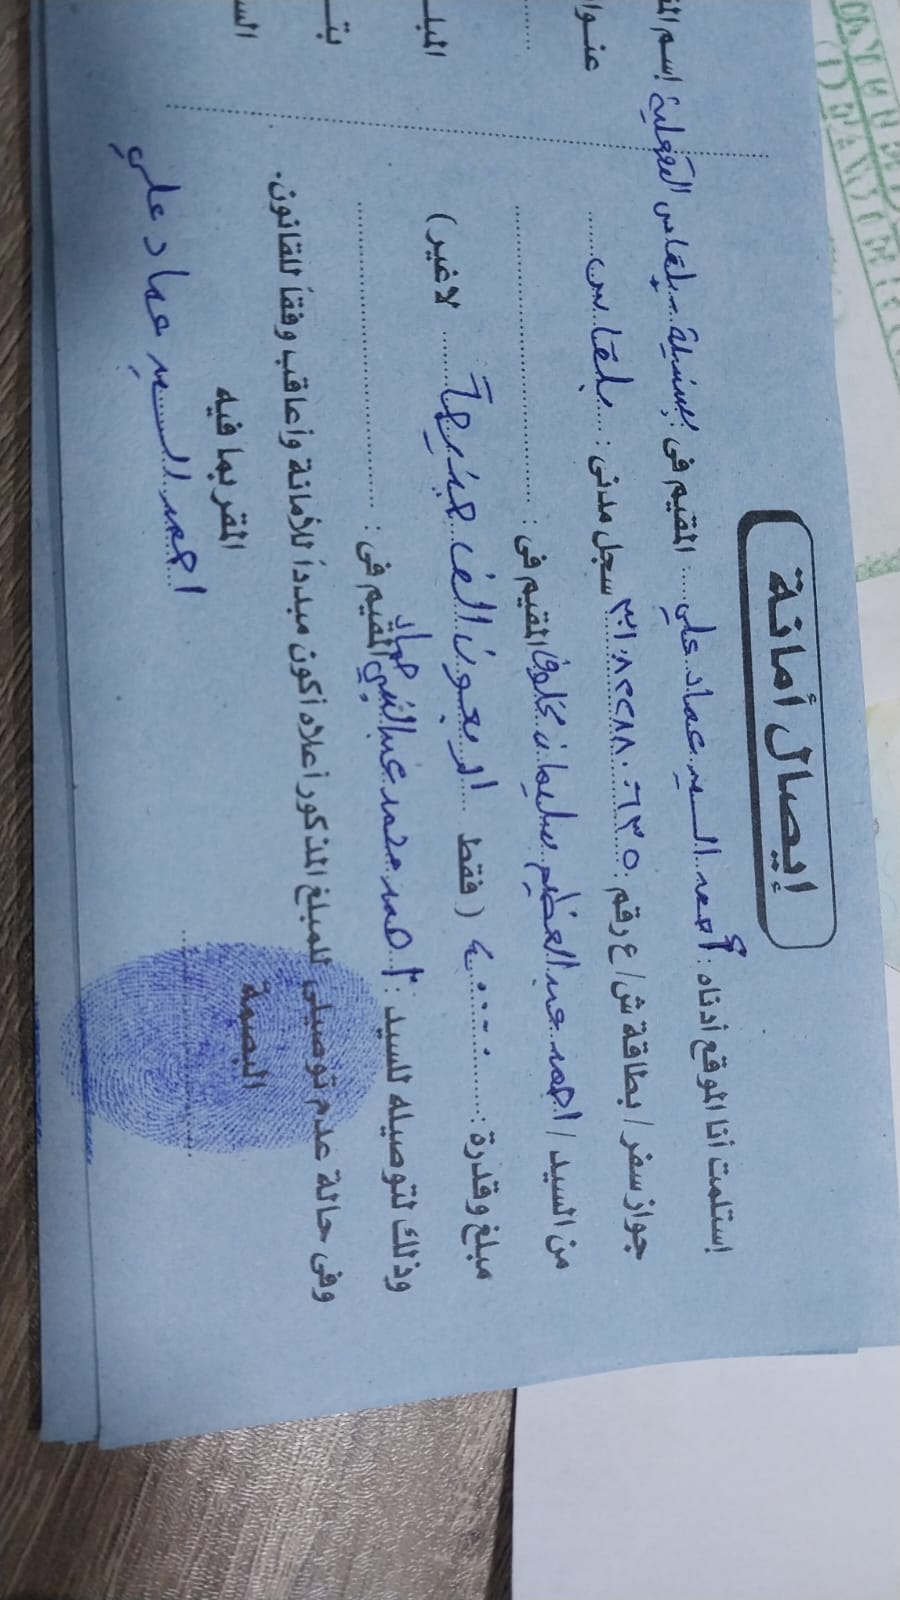 إيصال أمانة
إستلمت أنا الموقع أدناه : أحمد السيد عماد علي المقيم فى : بسنديلة - بلقاس - الدقهلية
جواز سفر / بطاقة ش / ع رقم : سجل مدنى : بلقاس
من السيد / احمد عبد العظيم سليمان المقيم فى :
مبلغ وقدرة : ٤٠٠٠٠ ( فقط اربعون الف جنيهاً لا غير )
وذلك لتوصيله للسيد : احمد محمد عبد النبي المقيم فى :
وفى حالة عدم توصيلى للمبلغ المذكور أعلاه أكون مبدداً للأمانة وأعاقب وفقاً للقانون.
البصمة المقر بما فيه
احمد السيد عماد علي
إسم